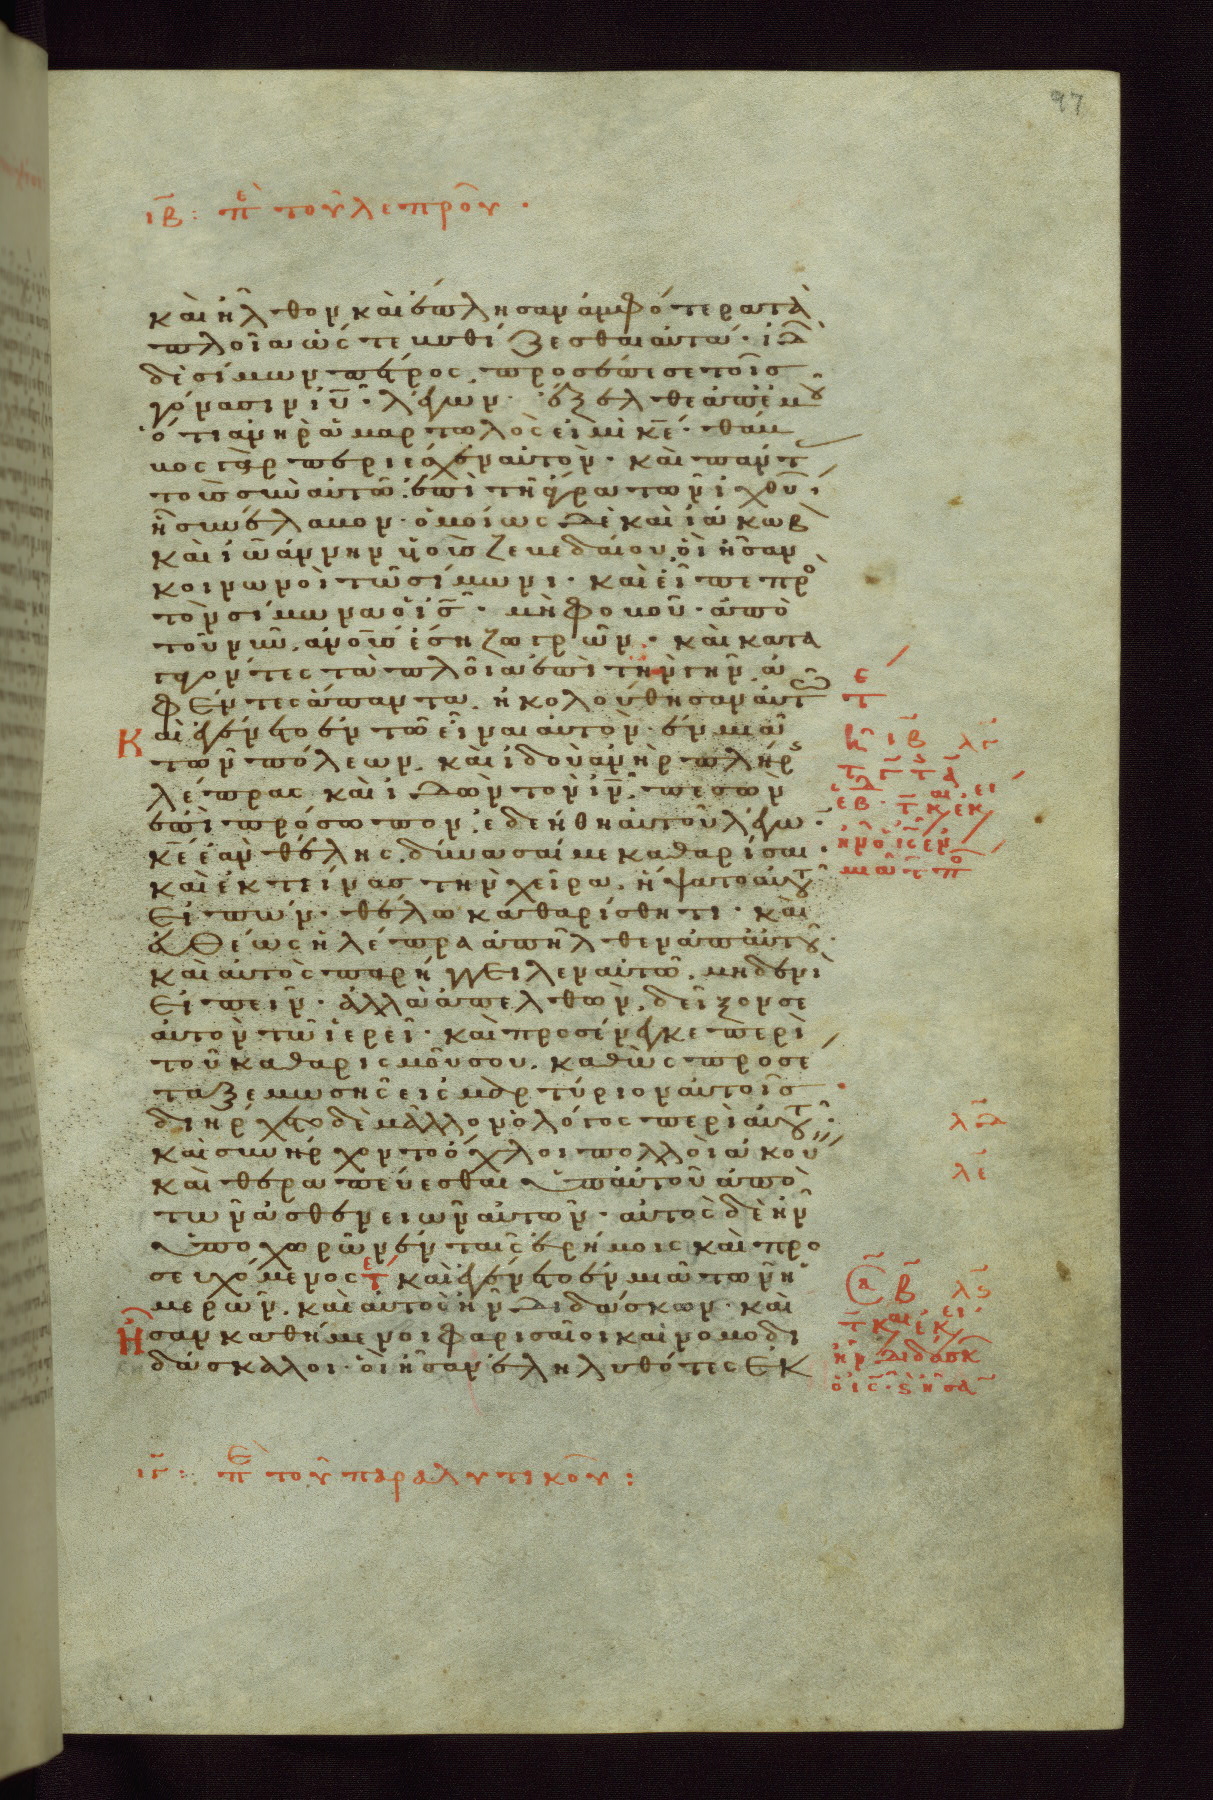 97
ιβ: πε τοῦ λεπροῦ·
καὶ ἦλθον καὶ ἔπλησαν ἀμφότερα τὰ
πλοῖα ὥστε βυθίζεσθαι αὐτά· ἰδ
δὲ σίμων πέτρος, προσέπεσε τοῖς
γόνασιν ιυ· λέγων· ἔξελθε ἀπ' ἐμοῦ
ὅτι ἀνὴρ ἁμαρτωλός εἰμι κε· θάμ
βος γὰρ περιέσχεν αὐτὸν· καὶ παντ
τοὺς σὺν αὐτῶ, ἐπὶ τῆ ἄγρα τῶν ἰχθύ
ἧ συνέλαβον· ὁμοίως δὲ καὶ ἰάκωβ
καὶ ἰωάννην υἱοὺς ζεβεδαίου, οἳ ἦσαν
κοινωνοὶ τῶ σίμωνι· καὶ εἶπε πρὸ
τὸν σίμωνα ὁ ις· μὴ φοβοῦ· ἀπὸ
τοῦ νῦν ανους ἔση ζωγρῶν· καὶ κατα
γαγόντες τὰ πλοῖα ἐπὶ τὴν γῆν, ἀ
φέντες ἅπαντα, ἠκολούθησαν αὐτῶ
Καὶ ἐγένετο ἐν τῶ εἶναι αὐτὸν ἐν μιᾶ
τῶν πόλεων, καὶ ἰδοὺ ἀνὴρ πλήρς
λέπρας καὶ ἰδὼν τὸν ιν, πεσὼν
ἐπὶ πρόσωπον, ἐδεήθη αὐτοῦ λέγω
κε ἐὰν θέλης, δύνασαί με καθαρίσαι·
καὶ ἐκτείνας τὴν χεῖρα, ἥψατο αὐτοῦ
εἰπών· θέλω καθαρίσθητι· καὶ
εὐθέως ἡ λέπρα ἀπῆλθεν ἀπ' αὐτοῦ·
καὶ αὐτὸς παρήγγειλεν αὐτῶ, μηδενὶ
εἰπεῖν· ἀλλὰ ἀπελθὼν, δεῖξον σε
αὐτὸν τῶ ἱερεῖ· καὶ προσένεγκε περὶ
τοῦ καθαρισμοῦ σου, καθὼς προσέ
ταξε μωσῆς εἰς μαρτύριον αὐτοῖς
διήρχετο δὲ μᾶλλον ὁ λόγος περὶ αὐτοῦ·
καὶ συνήρχοντο ὄχλοι πολλοὶ ἀκού
καὶ θεραπεύεσθαι ὑπ' αὐτοῦ ἀπὸ
τῶν ἀσθενειῶν αὐτῶν· αὐτὸς δὲ ἦν
ὑποχωρῶν ἐν ταῖς ἐρήμοις καὶ προ
σευχόμενος τε καὶ ἐγένετο ἐν μιᾶ τῶν ἡ
μερῶν, καὶ αὐτὸς ἦν διδάσκων· καὶ
Ἦσαν καθήμενοι φαρισαῖοι καὶ νομοδι
δάσκαλοι· οἳ ἦσαν ἐληλυθότες ἐκ
τε
λγ
λδ
λε
β λς
ιγ: πε τοῦ παραλυτικοῦ: